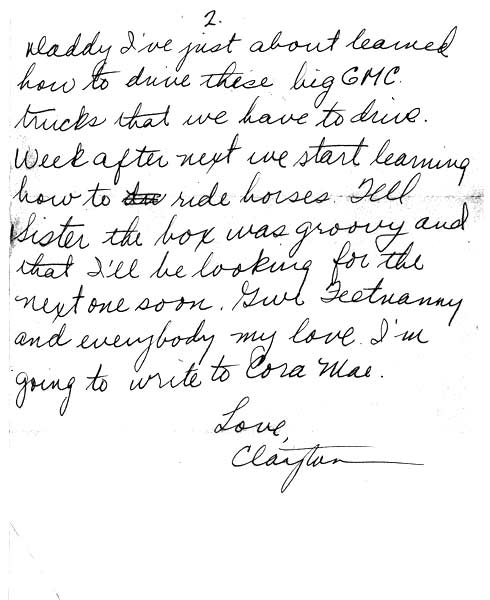 2.
Daddy I've just about learned
how to drive these big GMC.
trucks that we have to drive.
Week after next we start learning
how to ride horses. Tell
Sister the box was groovy and
that I'll be looking for the
next one soon. Give Feetnanny
and everybody my love. I'm
going to write to Cora Mae.
Love,
Clayton